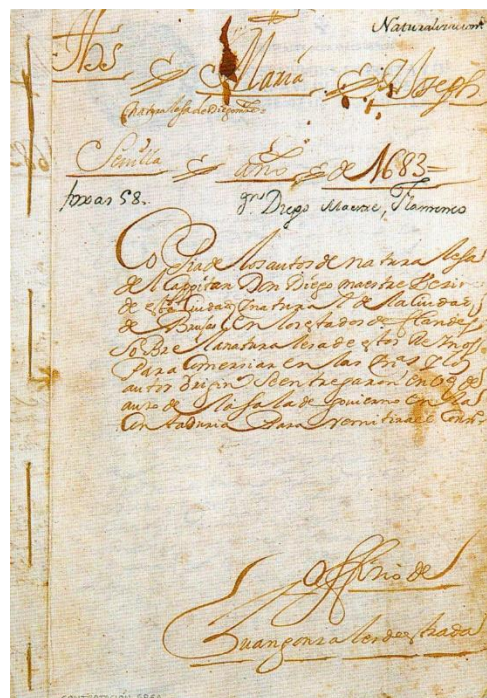 Naturalizacion
JHS & Maria & Joseph
Sevilla & año & de 1683=
foxas 58.
Dn. Diego Maestre, Flamenco
Copia de los autos de naturalesa
del Cappitan Don Diego maestre Vesino
de esta Ciudad y natural de la Ciudad
de Brujas en los estados de flandes
Sobre la naturalesa de estos Reinos
Para Comersiar en las
autos origin Se entregaron en 19 de
de la sala de govierno en la
Contaduria Para remitirse
officio de
Juan gonzales de estrada